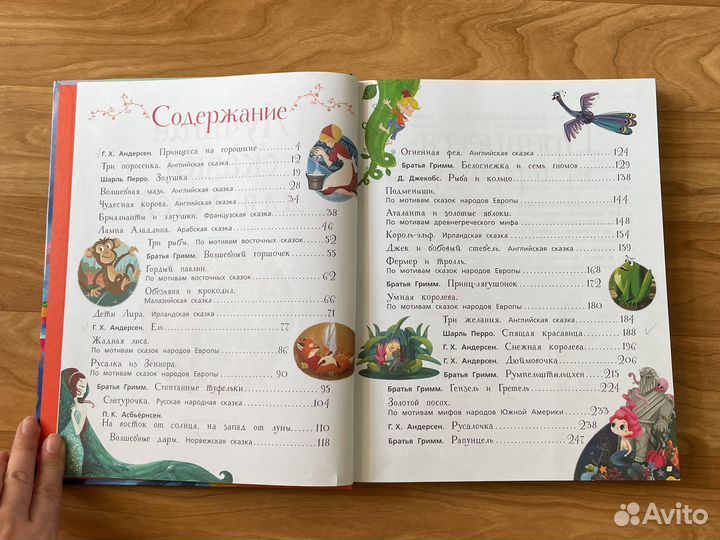 Содержание
Г. Х. Андерсен. Принцесса на горошине 4
Три поросенка. Английская сказка 12
Шарль Перро. Золушка 19
Волшебная мазь. Английская сказка 28
Чудесная корова. Английская сказка 34
Бриллианты и лягушки. Французская сказка 38
Лампа Аладдина. Арабская сказка 46
Три рыбы. По мотивам восточных сказок 52
Братья Гримм. Волшебный горшочек 55
Гордый павлин.
По мотивам восточных сказок 62
Обезьяна и крокодил.
Малазийская сказка 66
Дети Лира. Ирландская сказка 71
Г. Х. Андерсен. Ель 77
Жадная лиса.
По мотивам сказок народов Европы 86
Русалка из Зеннора.
По мотивам сказок народов Европы 90
Братья Гримм. Стоптанные туфельки 95
Снегурочка. Русская народная сказка 104
П. К. Асбьёрнсен.
На восток от солнца, на запад от луны 110
Волшебные дары. Норвежская сказка 118
Огненная фея. Английская сказка 124
Братья Гримм. Белоснежка и семь гномов 129
Д. Джекобс. Рыба и кольцо 138
Подменыши.
По мотивам сказок народов Европы 144
Аталанта и золотые яблоки.
По мотивам древнегреческого мифа 148
Король-эльф. Ирландская сказка 154
Джек и бобовый стебель. Английская сказка 159
Фермер и тролль.
По мотивам сказок народов Европы 168
Братья Гримм. Принц-лягушонок 172
Умная королева.
По мотивам сказок народов Европы 180
Три желания. Английская сказка 184
Шарль Перро. Спящая красавица 188
Г. Х. Андерсен. Снежная королева 196
Г. Х. Андерсен. Дюймовочка 206
Братья Гримм. Румпельштильцхен 215
Братья Гримм. Гензель и Гретель 224
Золотой посох.
По мотивам мифов народов Южной Америки 233
Г. Х. Андерсен. Русалочка 238
Братья Гримм. Рапунцель 247
Avito